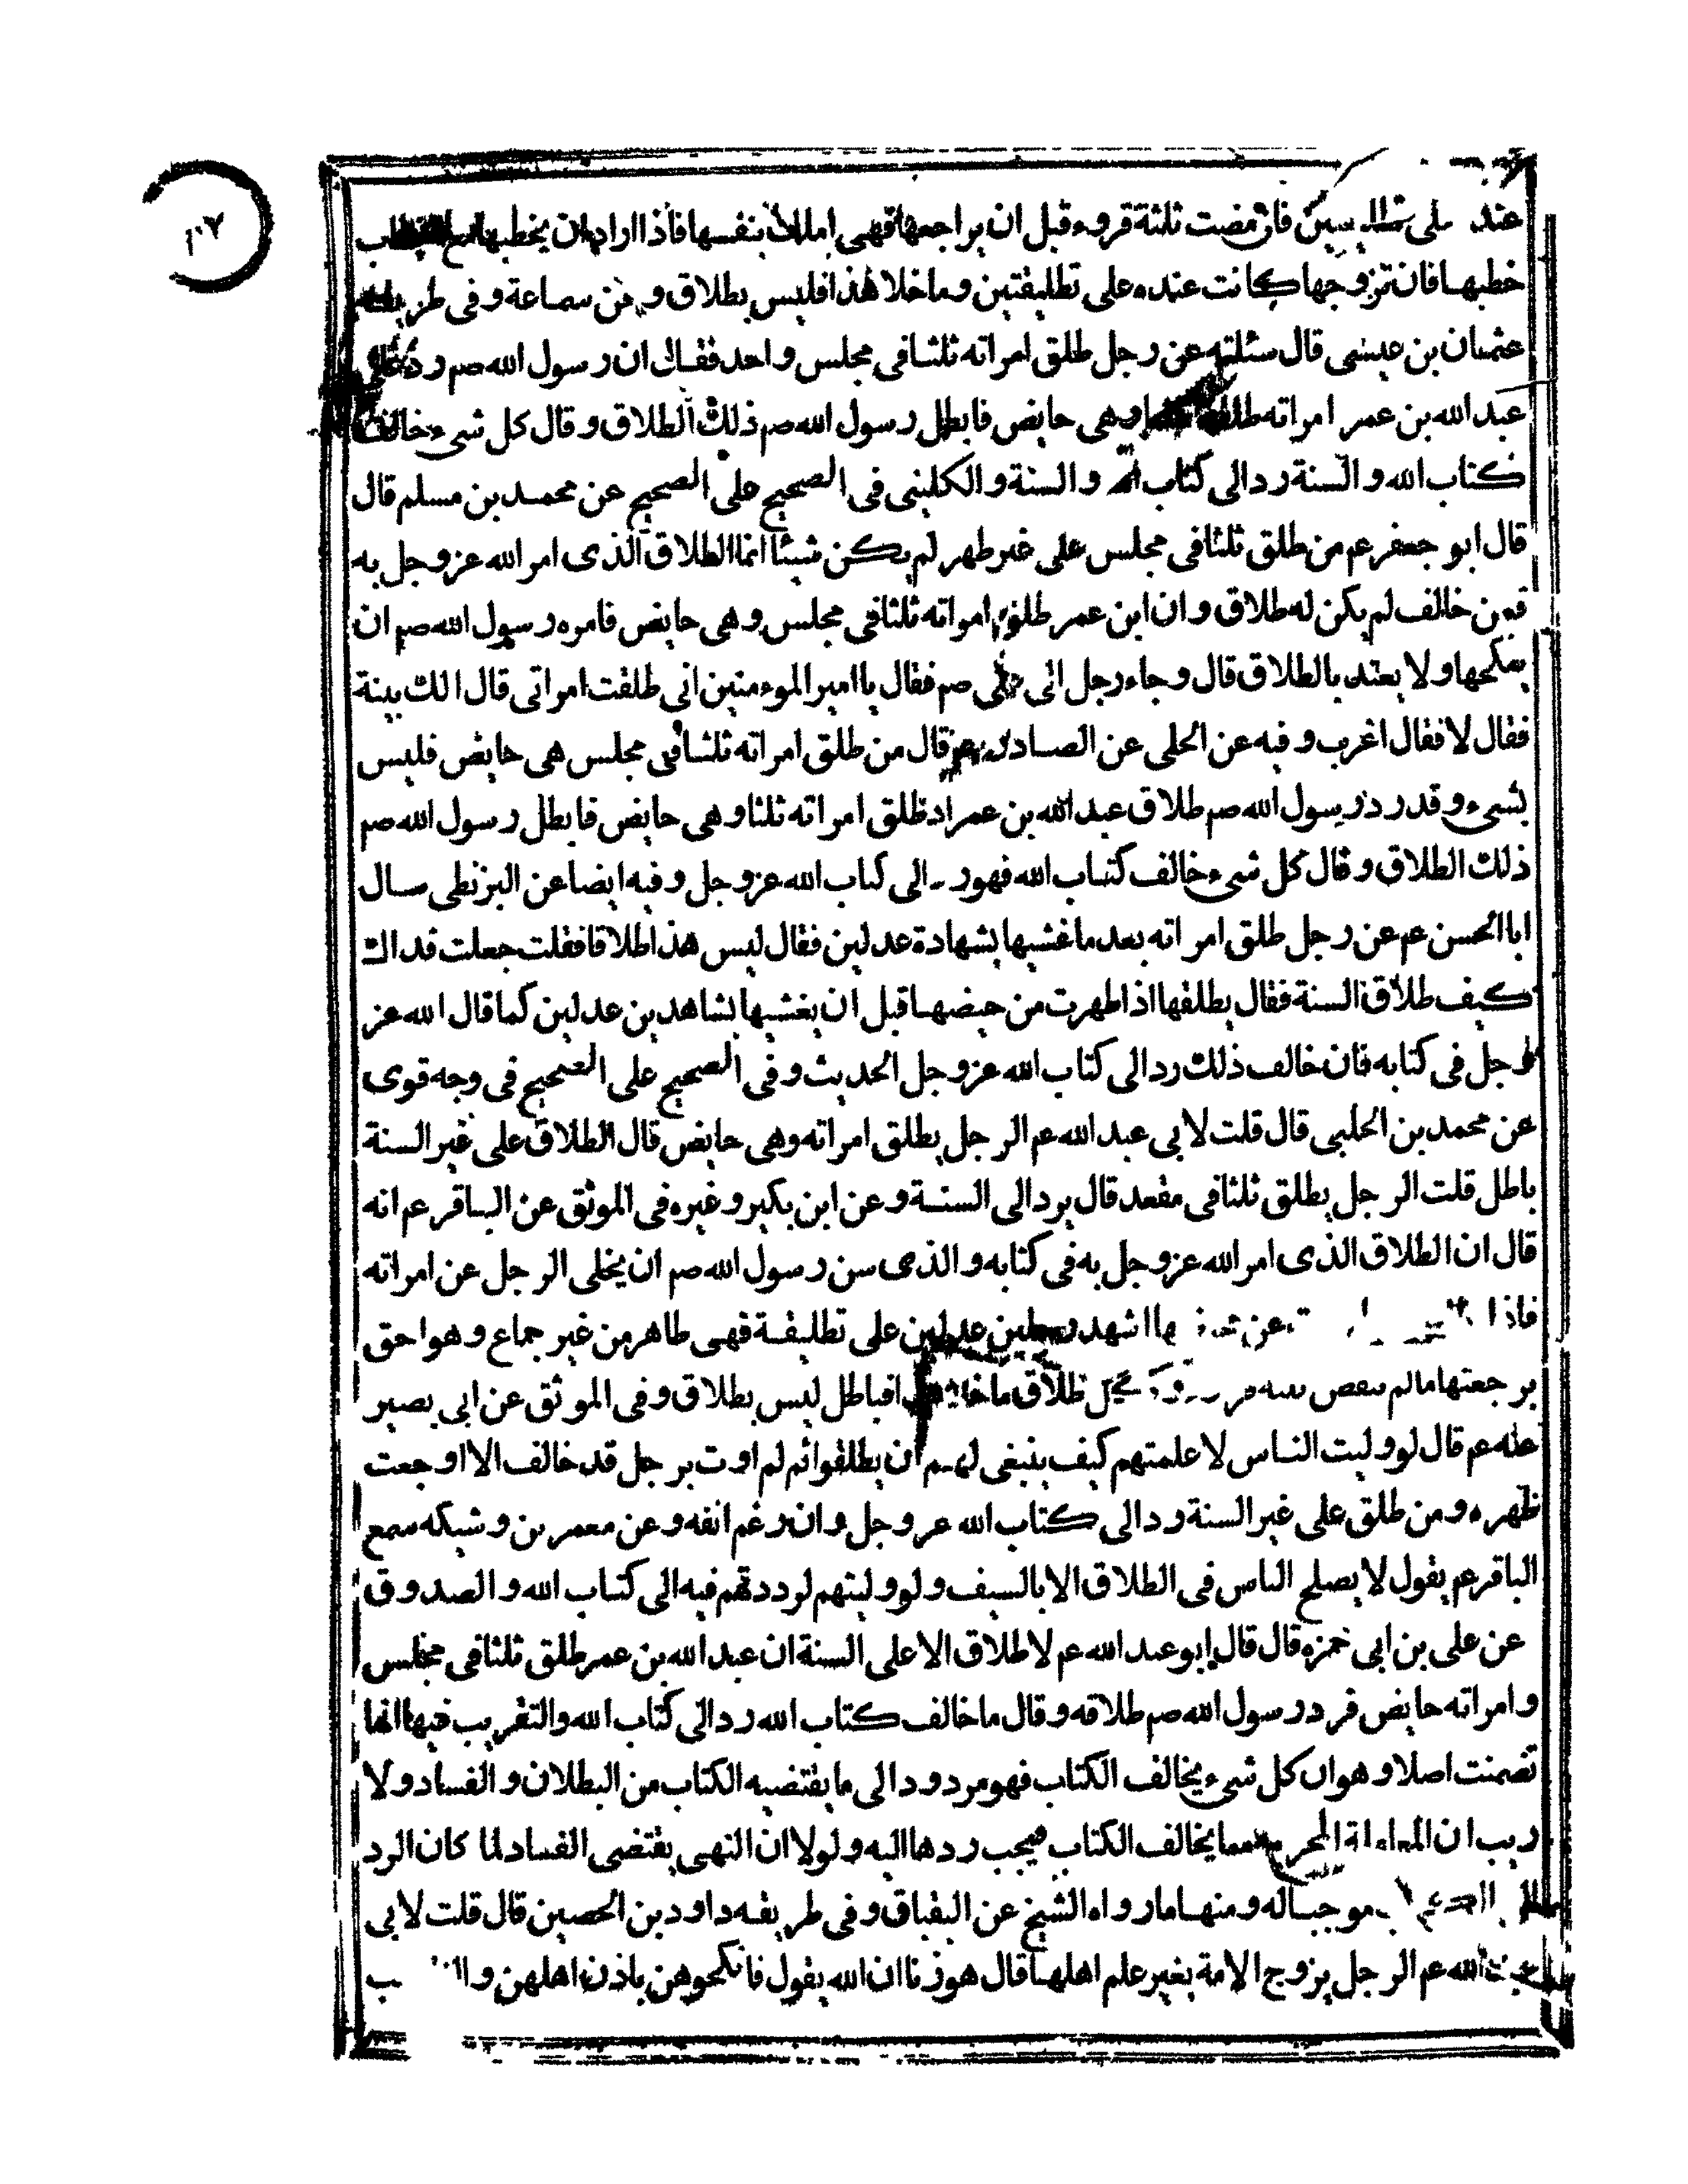 ١٠٢
عند على تطليقتين فان مضت ثلثة قروء قبل ان يراجعها فهى املك بنفسها فاذا اراد ان يخطبها مع الخطاب
خطبها فان تزوجها كانت عنده على تطليقتين وما خلا هذا فليس بطلاق وعن سماعة وفى طريقه
عثمان بن عيسى قال سئلته عن رجل طلق امراته ثلثا فى مجلس واحد فقال ان رسول الله صم رد على
عبد الله بن عمر امراته طلقها ثلثا وهى حايض فابطل رسول الله صم ذلك الطلاق وقال كل شىء خالف
كتاب الله والسنة رد الى كتاب الله والسنة والكلينى فى الصحيح على الصحيح عن محمد بن مسلم قال
قال ابو جعفر عم من طلق ثلثا فى مجلس على غير طهر لم يكن شيئا انما الطلاق الذى امر الله عز وجل به
فمن خالف لم يكن له طلاق وان ابن عمر طلق امراته ثلثا فى مجلس وهى حايض فامره رسول الله صم ان
ينكحها ولا يعتد بالطلاق قال وجاء رجل الى على صم فقال يا امير الموءمنين انى طلقت امراتى قال الك بينة
فقال لا فقال اغرب وفيه عن الحلبى عن الصادق عم قال من طلق امراته ثلثا فى مجلس هى حايض فليس
بشىء وقد رد رسول الله صم طلاق عبد الله بن عمر اذ طلق امراته ثلثا وهى حايض فابطل رسول الله صم
ذلك الطلاق وقال كل شىء خالف كتاب الله فهو رد الى كتاب الله عز وجل وفيه ايضا عن البزنطى سال
ابا الحسن عم عن رجل طلق امراته بعد ما غشيها بشهادة عدلين فقال ليس هذا طلاقا فقلت جعلت فداك
كيف طلاق السنة فقال يطلقها اذا طهرت من حيضها قبل ان يغشيها بشاهدين عدلين كما قال الله عز
وجل فى كتابه فان خالف ذلك رد الى كتاب الله عز وجل الحديث وفى الصحيح على الصحيح فى وجه قوى
عن محمد بن الحلبى قال قلت لابى عبد الله عم الرجل يطلق امراته وهى حايض قال الطلاق على غير السنة
باطل قلت الرجل يطلق ثلثا فى مقعد قال يرد الى السنة وعن ابن بكير وغيره فى الموثق عن الباقر عم انه
قال ان الطلاق الذى امر الله عز وجل به فى كتابه والذى سن رسول الله صم ان يخلى الرجل عن امراته
فاذا اشهد رجلين عدلين على تطليقة فهى طاهر من غير جماع وهو احق
برجعتها ما لم تنقض وكل طلاق ما خلا هذا فباطل ليس بطلاق وفى الموثق عن ابى بصير
عنه عم قال لو وليت الناس لاعلمتهم كيف ينبغى لهم ان يطلقوا ثم لم اوت برجل قد خالف الا اوجعت
ظهره ومن طلق على غير السنة رد الى كتاب الله عز وجل وان رغم انفه وعن معمر بن وشيكه سمع
الباقر عم يقول لا يصلح الناس فى الطلاق الا بالسيف ولو وليتهم لرددتهم فيه الى كتاب الله والصدوق
عن على بن ابى حمزه قال قال ابو عبد الله عم لا طلاق الا على السنة ان عبد الله بن عمر طلق ثلثا فى مجلس
وامراته حايض فرد رسول الله صم طلاقه وقال ما خالف كتاب الله رد الى كتاب الله والتقريب فيها انها
تضمنت اصلا وهو ان كل شىء يخالف الكتاب فهو مردود الى ما يقتضيه الكتاب من البطلان والفساد ولا
ريب ان المعاملة المحرمة مما يخالف الكتاب فيجب ردها اليه ولولا ان النهى يقتضى الفساد لما كان الرد
موجبا له ومنها ما رواه الشيخ عن البقباق وفى طريقه داود بن الحصين قال قلت لابى
عبد الله عم الرجل يزوج الامة بغير علم اهلها قال هو زنا ان الله يقول فانكحوهن باذن اهلهن